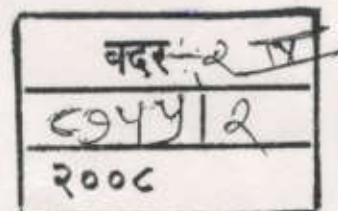 बदर-२
८७५५।२
२००८